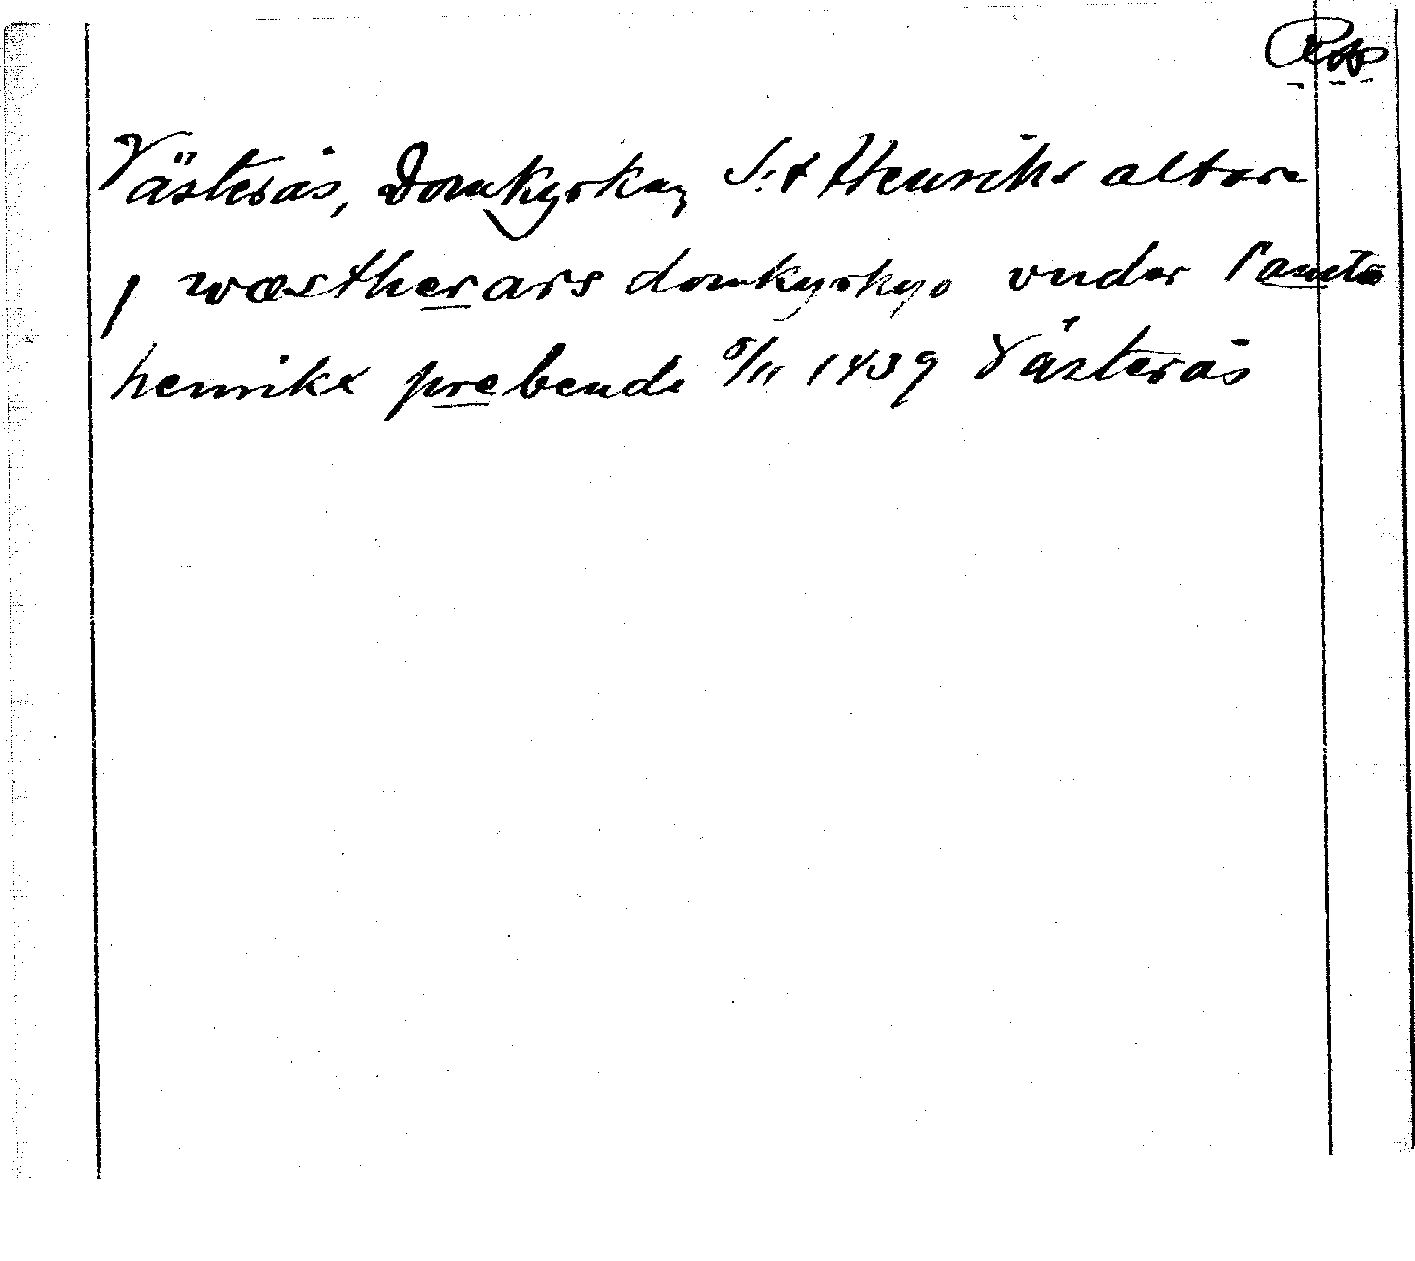 Västerås, Domkyrkan, S:t Henriks altare
j wæstherars domkyrkyo vnder sancte
henrikx prebende 8/11 1439 Västerås